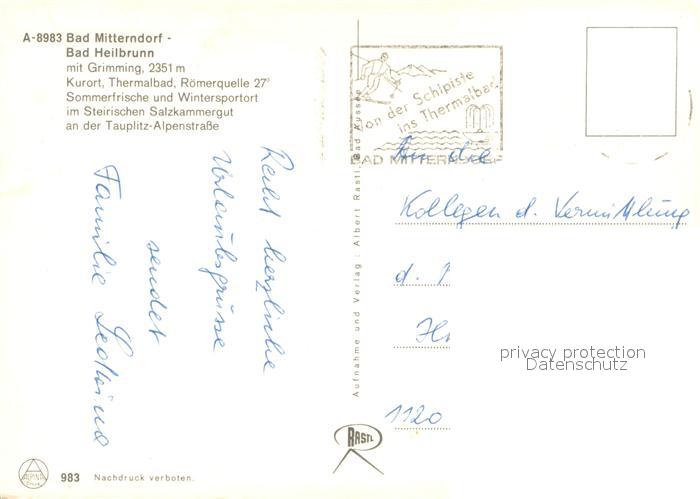 A-8983 Bad Mitterndorf -
Bad Heilbrunn
mit Grimming, 2351 m
Kurort, Thermalbad, Römerquelle 27°
Sommerfrische und Wintersportort
im Steirischen Salzkammergut
an der Tauplitz-Alpenstraße
Recht herzliche
Urlaubsgrüsse
sendet
Familie
ALPINA
983 Nachdruck verboten.
Aufnahme und Verlag: Albert Rastl, Bad Aussee
RASTL
Von der Schipiste
ins Thermalbad
BAD MITTERNDORF
An die
Kollegen d. Vermittlung
d.
1120
privacy protection
Datenschutz